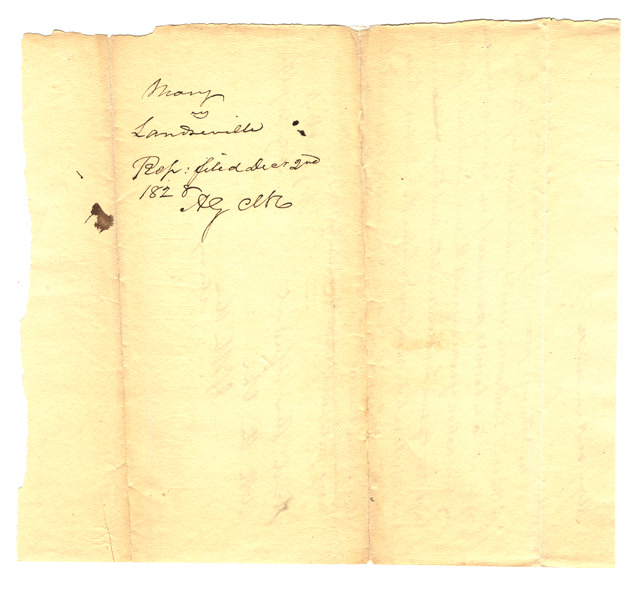 Mary
vs
Landreville
Rep: filed Decr 2nd
1828
AG Clk